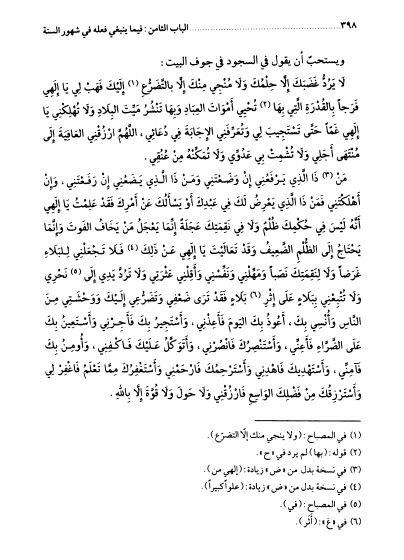 ٣٩٨ ........ الباب الثامن : فيما ينبغي فعله في شهور السنة
ويستحبّ أن يقول في السجود في جوف البيت :
لَا يَرُدُّ غَضَبَكَ إِلَّا حِلْمُكَ وَلَا مُنْجِيَ مِنْكَ إِلَّا بِالتَّضَرُّعِ (١) إِلَيْكَ فَهَبْ لِي يَا إِلَهِي
فَرَجاً بِالْقُدْرَةِ الَّتِي بِهَا (٢) تُحْيِي أَمْوَاتَ العِبَادِ وَبِهَا تَنْشُرُ مَيْتَ البِلَادِ وَلَا تُهْلِكْنِي يَا
إِلَهِي غَمّاً حَتَّى تَسْتَجِيبَ لِي وَتُعَرِّفَنِي الإِجَابَةَ فِي دُعَائِي ، اللَّهُمَّ ارْزُقْنِي العَافِيَةَ إِلَى
مُنْتَهَى أَجَلِي وَلَا تُشْمِتْ بِي عَدُوِّي وَلَا تُمَكِّنْهُ مِنْ عُنُقِي .
مَنْ (٣) ذَا الَّذِي يَرْفَعُنِي إِنْ وَضَعْتَنِي وَمَنْ ذَا الَّذِي يَضَعُنِي إِنْ رَفَعْتَنِي ، وَإِنْ
أَهْلَكْتَنِي فَمَنْ ذَا الَّذِي يَعْرِضُ لَكَ فِي عَبْدِكَ أَوْ يَسْأَلُكَ عَنْ أَمْرِكَ فَقَدْ عَلِمْتُ يَا إِلَهِي
أَنَّهُ لَيْسَ فِي حُكْمِكَ ظُلْمٌ وَلَا فِي نَقِمَتِكَ عَجَلَةٌ إِنَّمَا يَعْجَلُ مَنْ يَخَافُ الفَوتَ وَإِنَّمَا
يَحْتَاجُ إِلَى الظُّلْمِ الضَّعِيفُ وَقَدْ تَعَالَيْتَ يَا إِلَهِي عَنْ ذَلِكَ (٤) فَلَا تَجْعَلْنِي لِلبَلَاءِ
غَرَضاً وَلَا لِنَقِمَتِكَ نَصَباً وَمَهِّلْنِي وَنَفِّسْنِي وَأَقِلْنِي عَثْرَتِي وَلَا تَرُدَّ يَدِي إِلَى (٥) نَحْرِي
وَلَا تُتْبِعْنِي بِبَلَاءٍ عَلَى إِثْرِ (٦) بَلَاءٍ فَقَدْ تَرَى ضَعْفِي وَتَضَرُّعِي إِلَيْكَ وَوَحْشَتِي مِنَ
النَّاسِ وَأُنْسِي بِكَ ، أَعُوذُ بِكَ اليَوْمَ فَأَعِذْنِي ، وَأَسْتَجِيرُ بِكَ فَأَجِرْنِي وَأَسْتَعِينُ بِكَ
عَلَى الضَّرَّاءِ فَأَعِنِّي ، وَأَسْتَنْصِرُكَ فَانْصُرْنِي ، وَأَتَوَكَّلُ عَلَيْكَ فَاكْفِنِي ، وَأُومِنُ بِكَ
فَآمِنِّي ، وَأَسْتَهْدِيكَ فَاهْدِنِي وَأَسْتَرْحِمُكَ فَارْحَمْنِي وَأَسْتَغْفِرُكَ مِمَّا تَعْلَمُ فَاغْفِرْ لِي
وَأَسْتَرْزِقُكَ مِنْ فَضْلِكَ الوَاسِعِ فَارْزُقْنِي وَلَا حَولَ وَلَا قُوَّةَ إِلَّا بِاللهِ .
(١) في المصباح : (ولا ينجي منك إلا التضرّع).
(٢) قوله : (بها) لم يرد في «ح».
(٣) في نسخة بدل من «ض» زيادة : (إلهي من).
(٤) في نسخة بدل من «ض» زيادة : (علواً كبيراً).
(٥) في المصباح : (في).
(٦) في «غ» : (أَثَر).